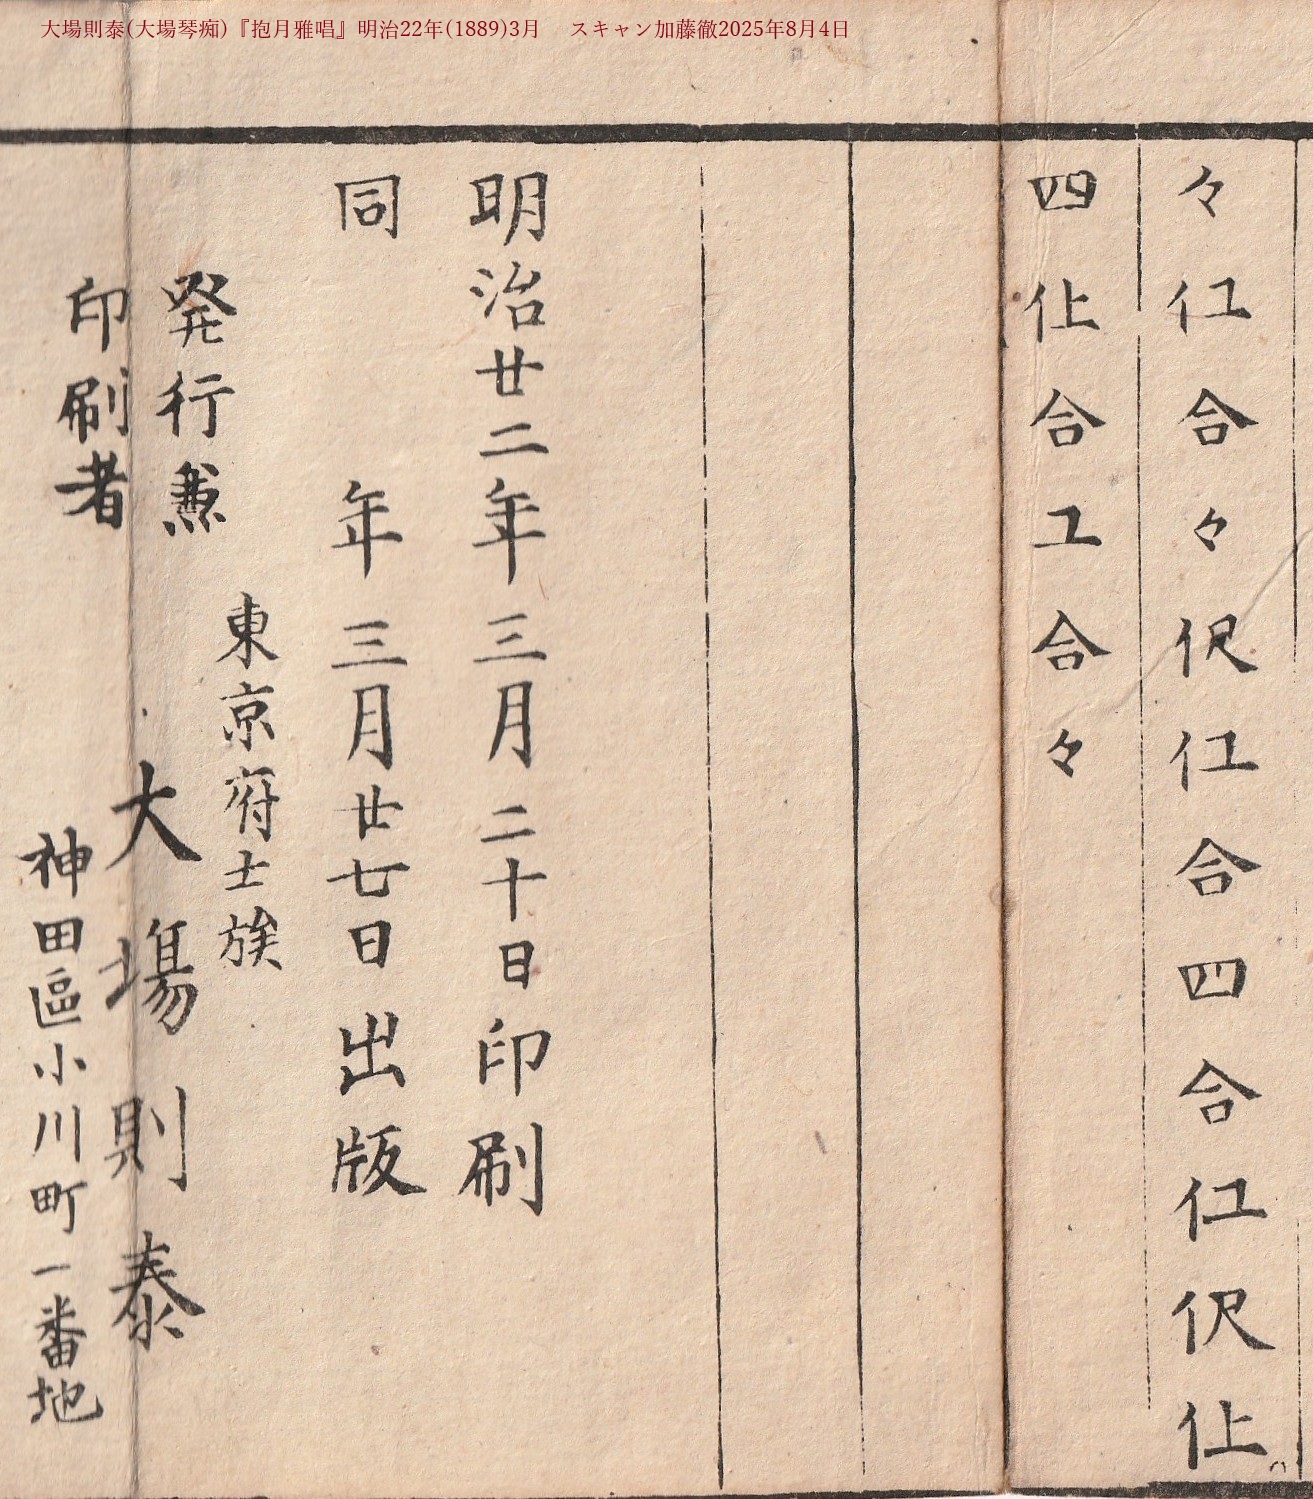 大場則泰(大場琴痴)『抱月雅唱』明治22年(1889)3月　スキャン加藤徹2025年8月4日
々仜合々伬仜合四合仜伬仩
四仩合工合々
明治廿二年三月二十日印刷
同　年三月廿七日出版
発行兼
印刷者
東京府士族
大場則泰
神田區小川町一番地